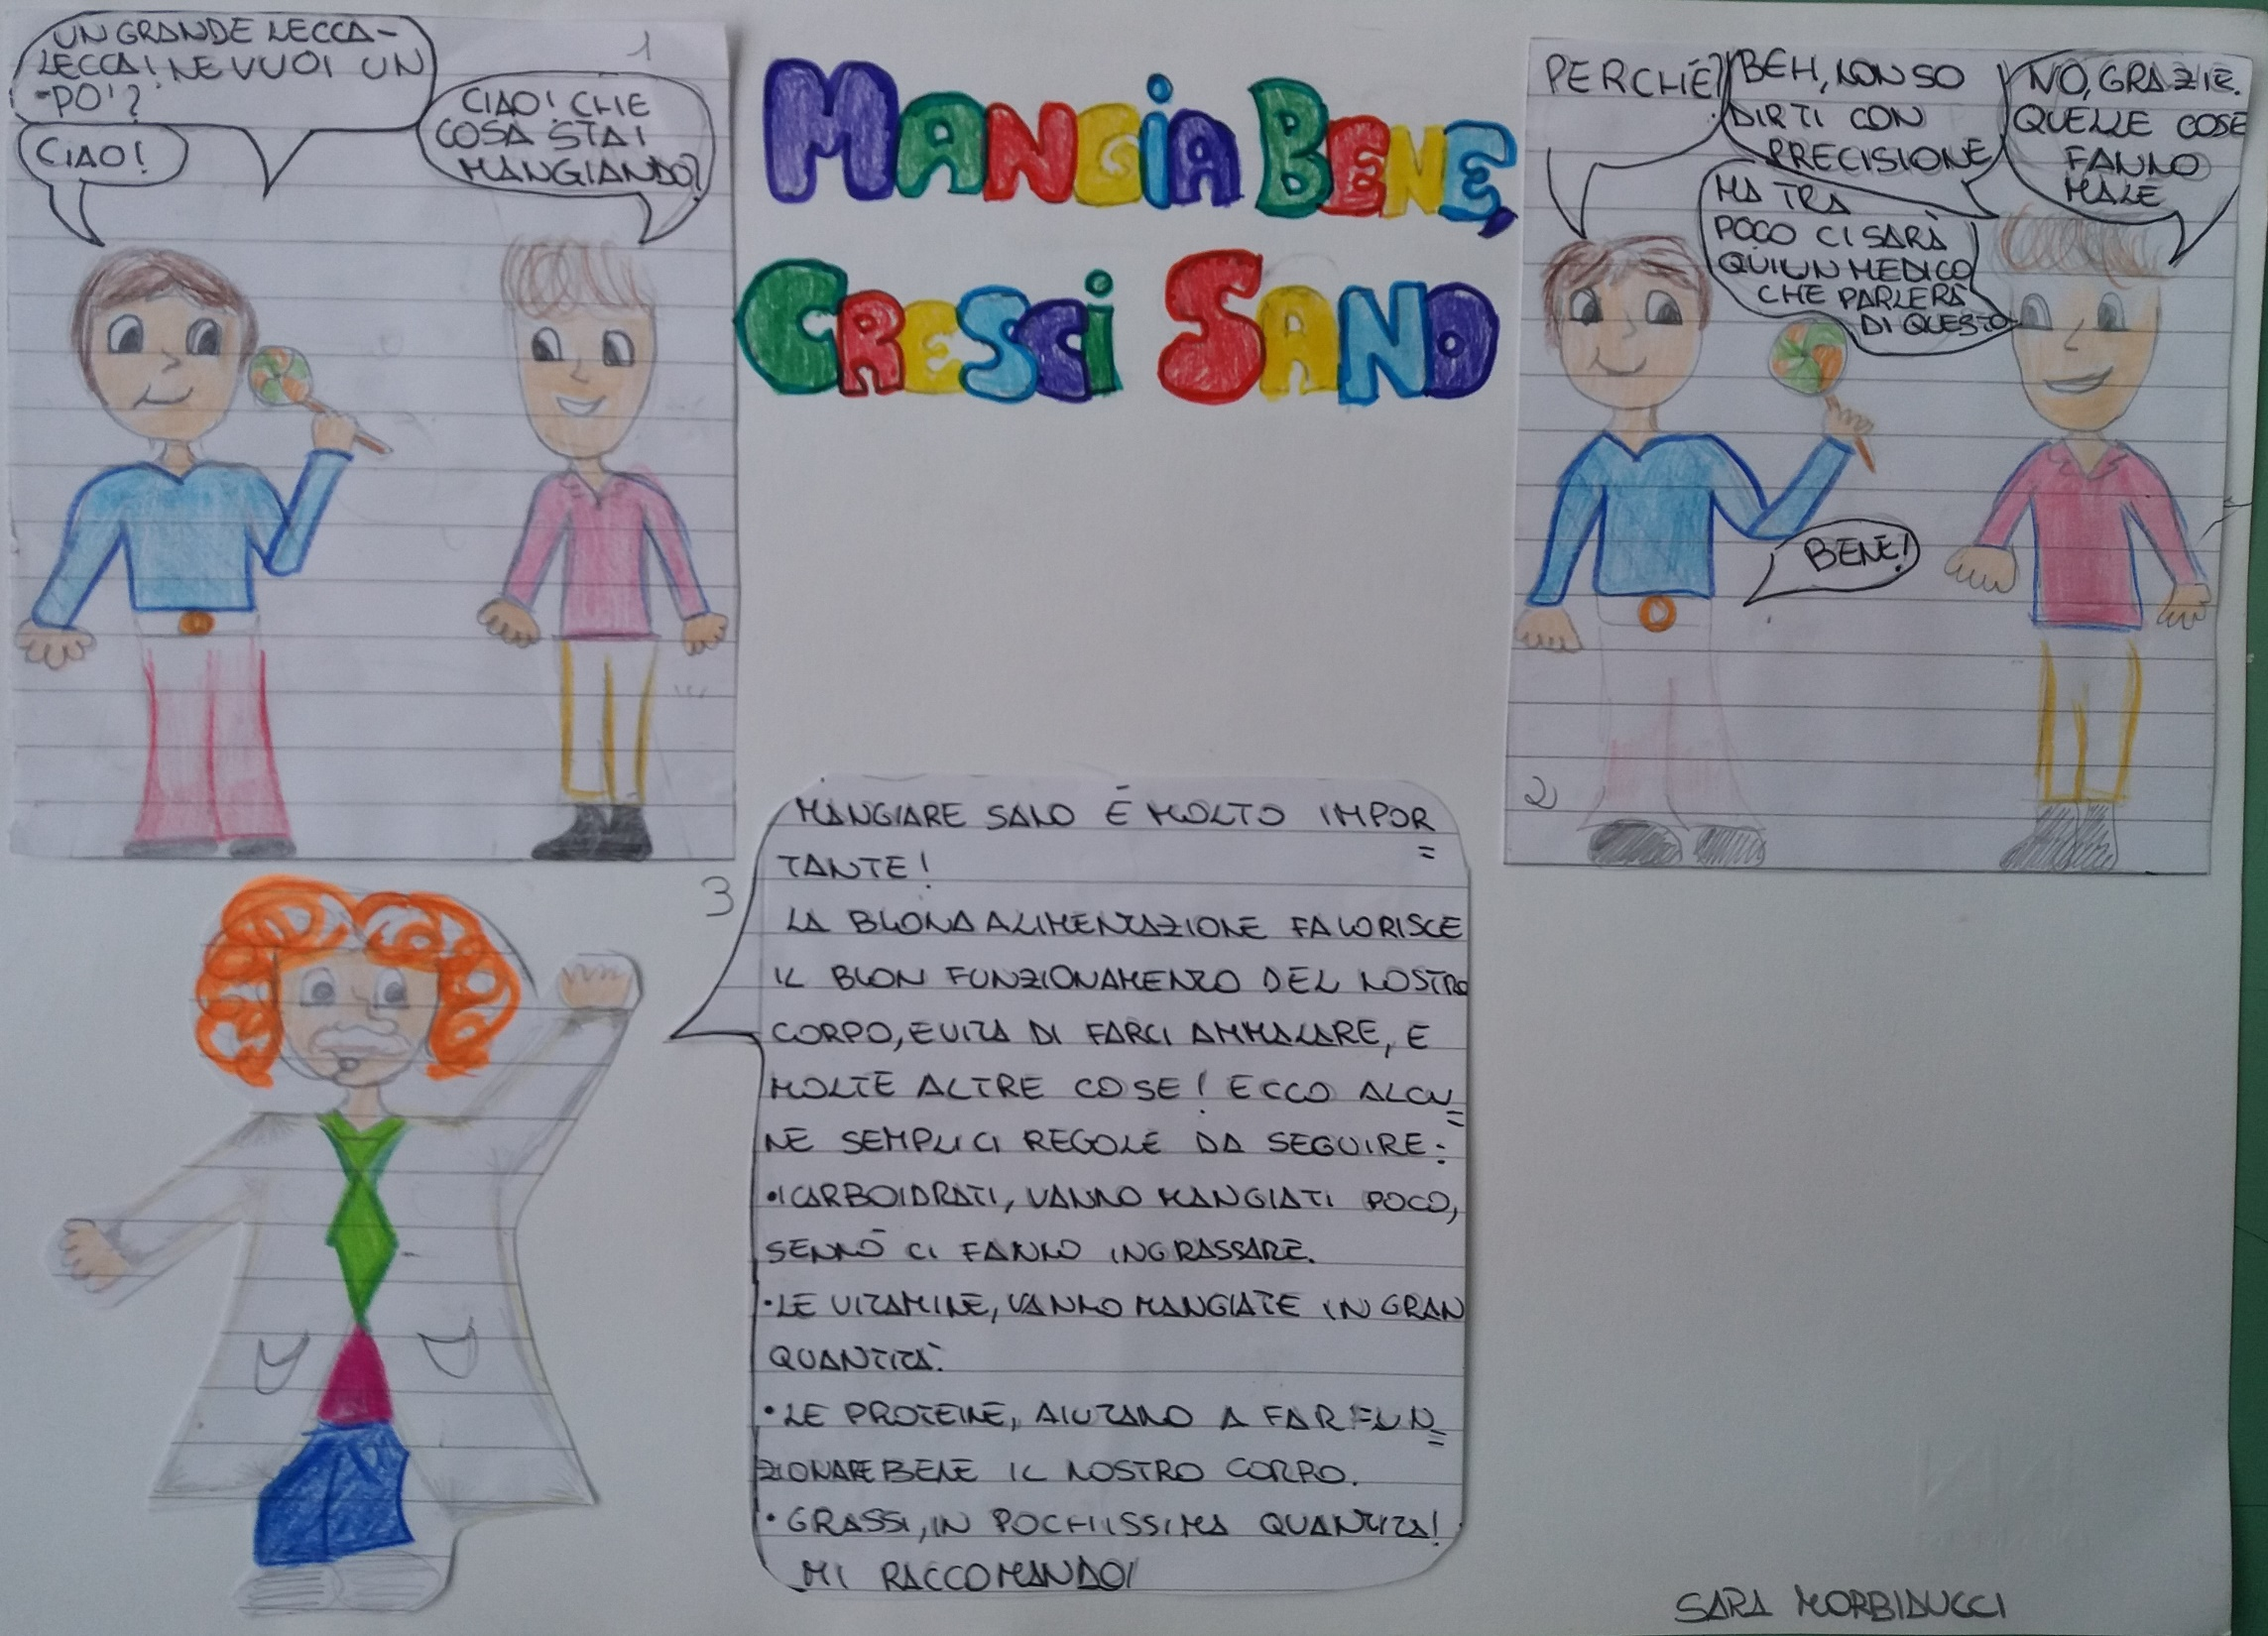 MANGIA BENE,
CRESCI SANO
1
CIAO!
CIAO! CHE
COSA STAI
MANGIANDO?
UN GRANDE LECCA-
LECCA! NE VUOI UN
PO'?
2
NO, GRAZIE.
QUELLE COSE
FANNO
MALE
PERCHÈ?
BEH, NON SO
DIRTI CON
PRECISIONE
MA TRA
POCO CI SARÀ
QUI UN MEDICO
CHE PARLERÀ
DI QUESTO
BENE!
3
MANGIARE SANO È MOLTO IMPOR=
TANTE!
LA BUONA ALIMENTAZIONE FAVORISCE
IL BUON FUNZIONAMENTO DEL NOSTRO
CORPO, EVITA DI FARCI AMMALARE, E
MOLTE ALTRE COSE! ECCO ALCU=
NE SEMPLICI REGOLE DA SEGUIRE:
•I CARBOIDRATI, VANNO MANGIATI POCO,
SENNÒ CI FANNO INGRASSARE.
•LE VITAMINE, VANNO MANGIATE IN GRAN
QUANTITÀ.
•LE PROTEINE, AIUTANO A FAR FUN=
ZIONARE BENE IL NOSTRO CORPO.
•GRASSI, IN POCHISSIMA QUANTITA!
MI RACCOMANDO!
SARA MORBIDUCCI